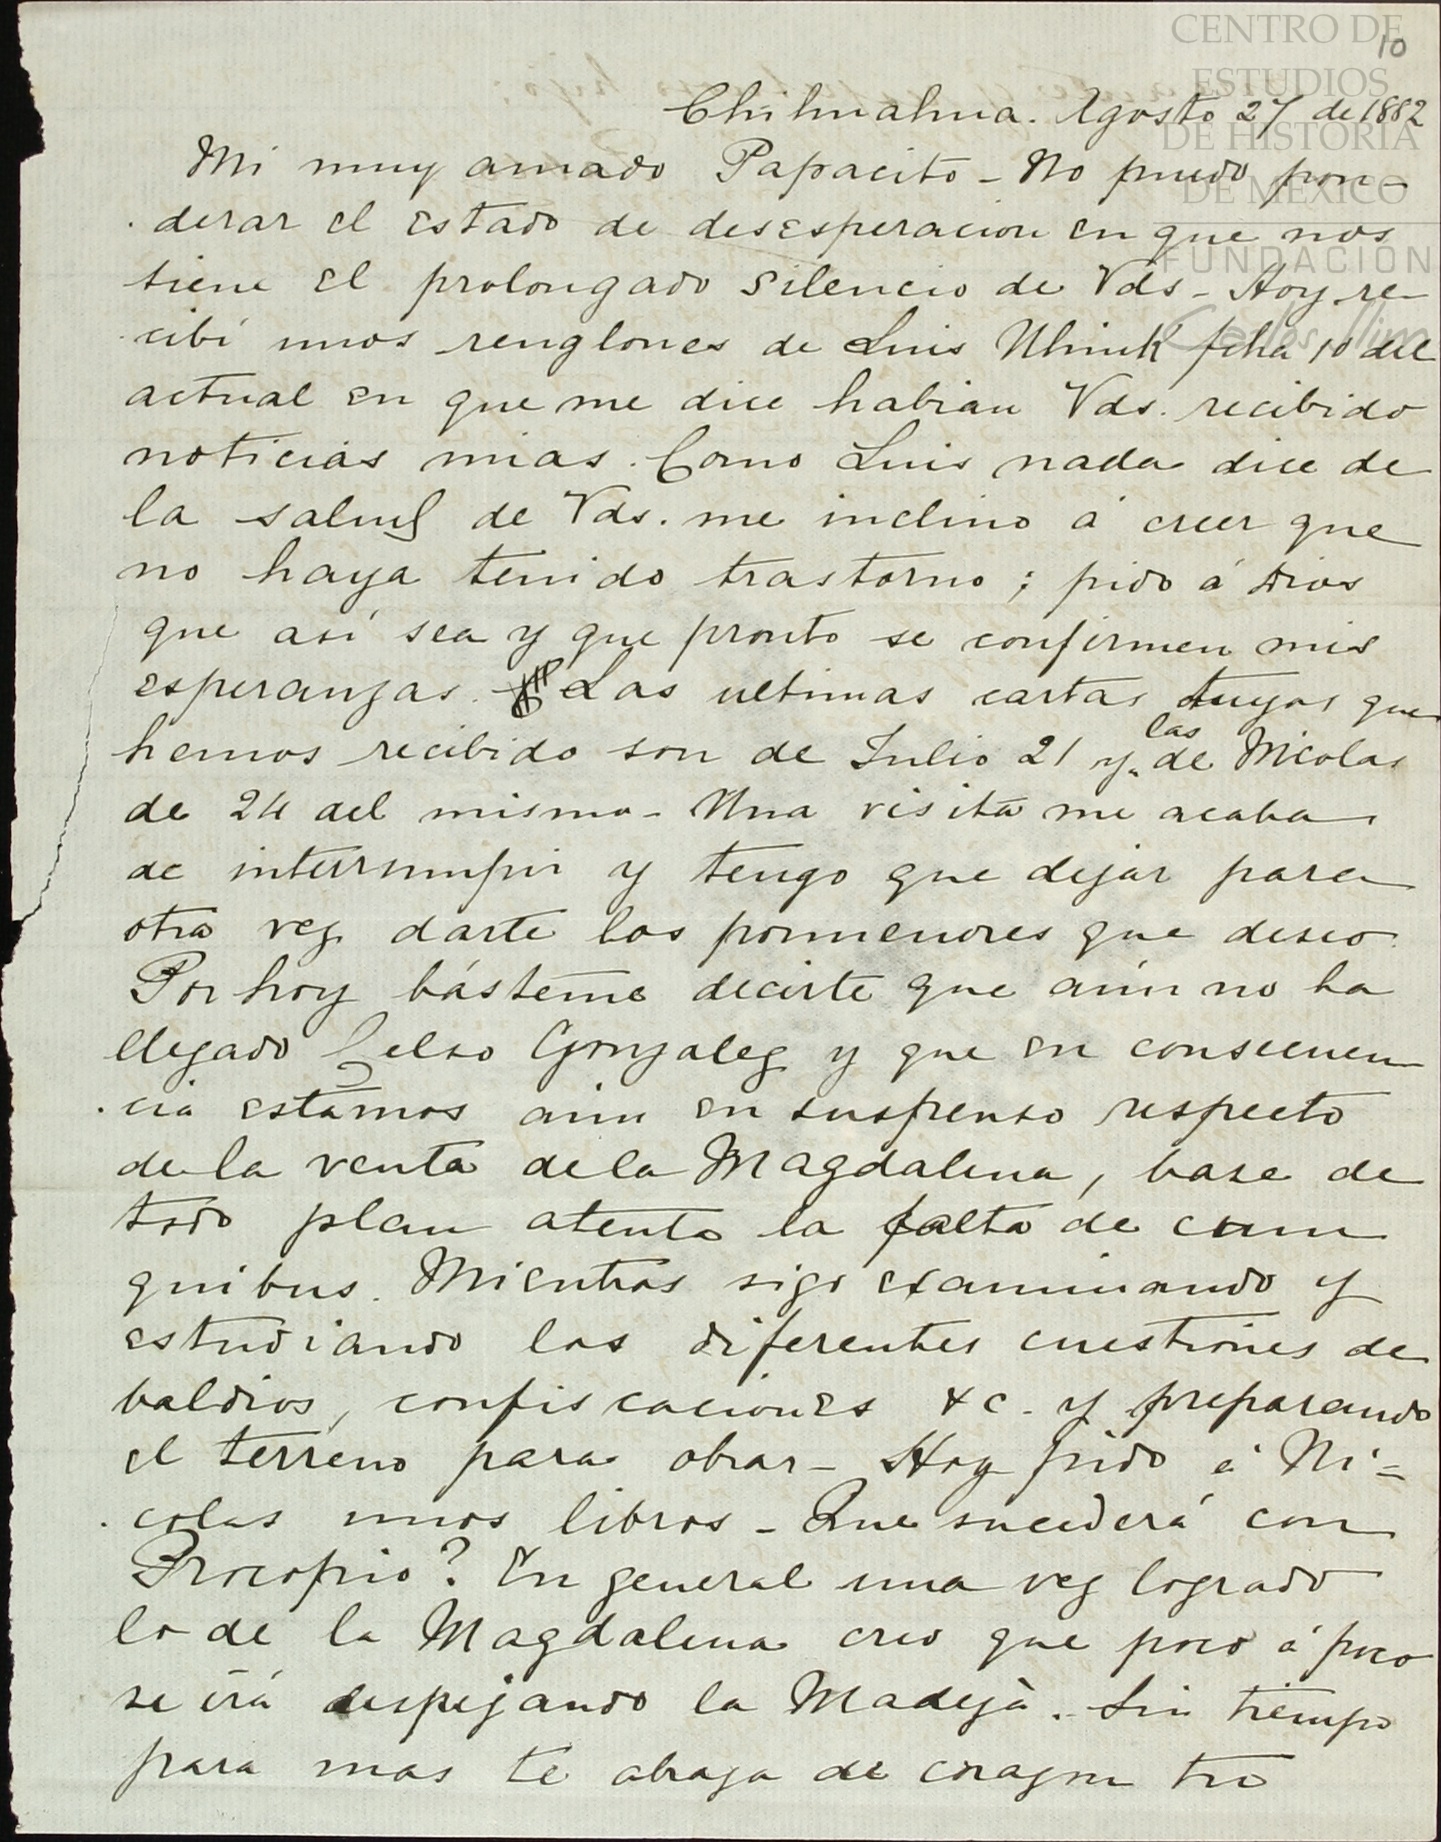 CENTRO DE
ESTUDIOS
DE HISTORIA
DE MEXICO
FUNDACIÓN
Carlos Slim
10
Chihuahua. Agosto 27 de 1882
Mi muy amado Papacito - No puedo pon-
derar el estado de desesperacion en que nos
tiene el prolongado silencio de Vds - Hoy re-
cibí unos renglones de Luis fha 10 del
actual en que me dice habian Vds. recibido
noticias mias. Como Luis nada dice de
la salud de Vds. me inclino á creer que
no haya tenido trastorno; pido á Dios
que así sea y que pronto se confirmen mis
esperanzas. Las ultimas cartas tuyas que
hemos recibido son de Julio 21 y las de Nicolas
de 24 del mismo - Una visita me acaba
de interrumpir y tengo que dejar para
otra vez darte los pormenores que deseo.
Por hoy básteme decirte que aún no ha
llegado Celso Gonzalez y que en consecuen
cia estamos aun en suspenso respecto
de la venta de la Magdalena, base de
todo plan atenta la falta de cum
quibus. Mientras sigo examinando y
estudiando las diferentes cuestiones de
baldios, confiscaciones &c. y preparando
el terreno para obrar - Hoy pido á Ni=
colas unos libros - Que sucederá con
Procopio? En general una vez logrado
lo de la Magdalena creo que poco á poco
se irá despejando la Madeja. Sin tiempo
para mas te abraza de corazon tu